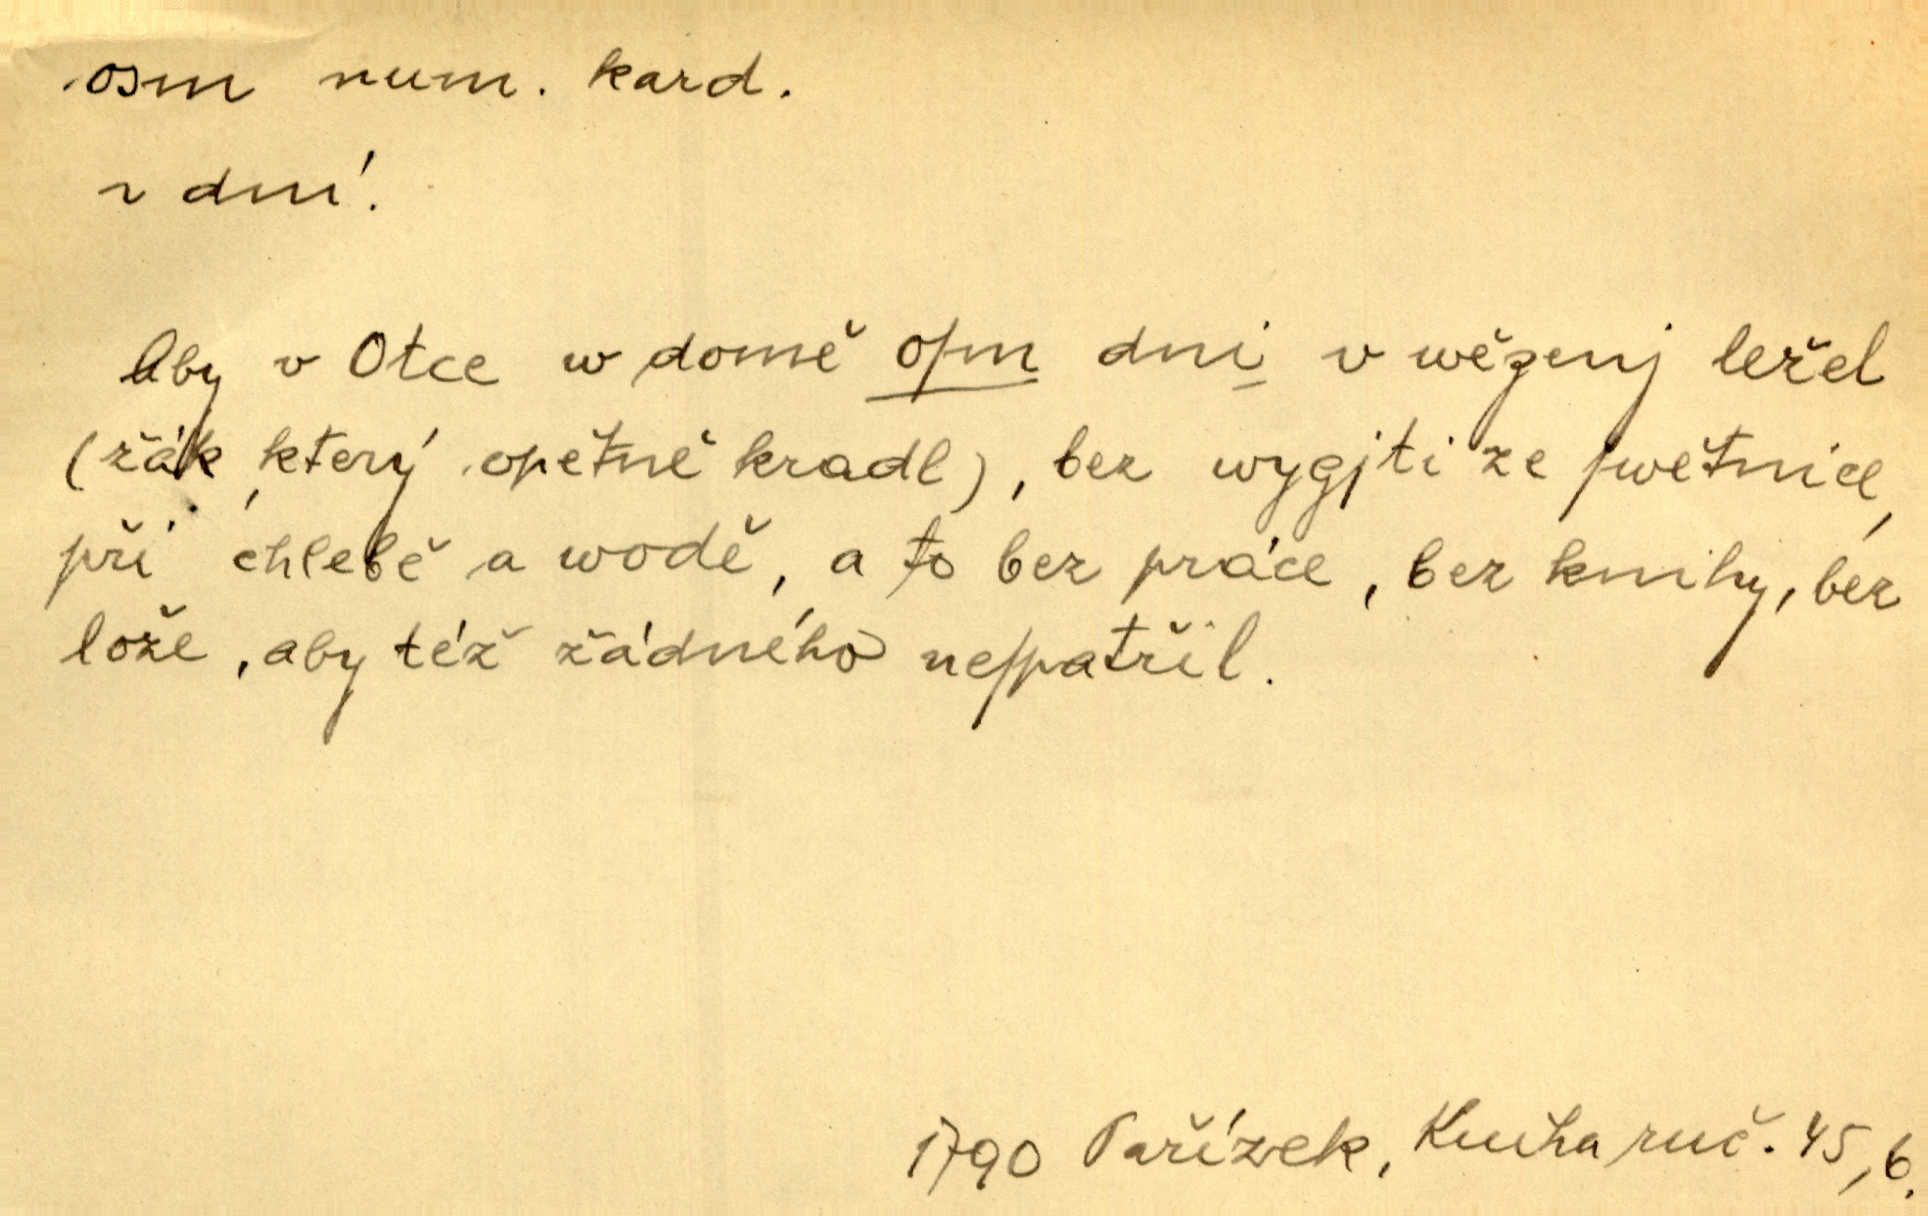 osm num. kard.
~ dní.
Aby v Otce w domě oſm dni v wězenj ležel
(žák, který opětně kradl), bez wygjti ze ſwětnice,
při chlebě a wodě, a to bez práce, bez knihy, bez
lože, aby též žádného neſpatřil.
1790 Pařízek, Kniha ruč. 45,6.